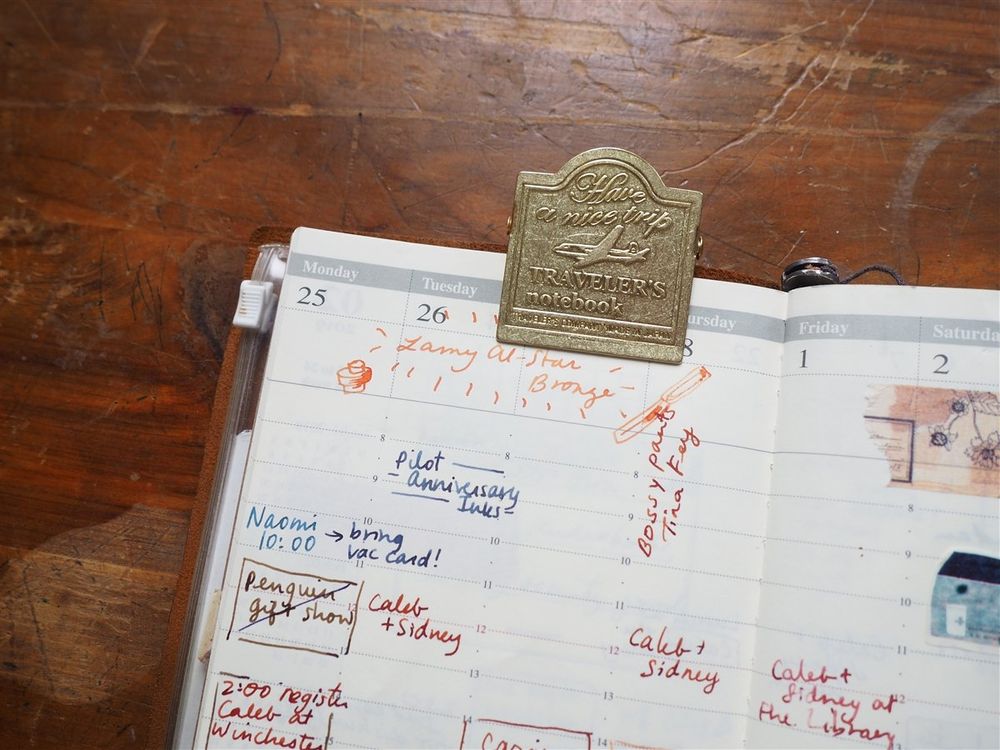 Have
a nice trip
TRAVELER'S
notebook
Monday
25
Tuesday
26
ursday
8
Friday
1
Saturda
2
Lamy Al-Star
Bronze
Bossy pants
Tina Fey
8
8
Pilot
Anniversary
Inks
9
9
9
Naomi
10:00 → bring
vac card!
10
10
10
11
11
11
11
Penguin
gift show
Caleb
+ Sidney
12
12
12
12
Caleb +
Sidney
Caleb +
Sidney at
the Library
13
13
2:00 register
Caleb at
Winchester
14
14
15